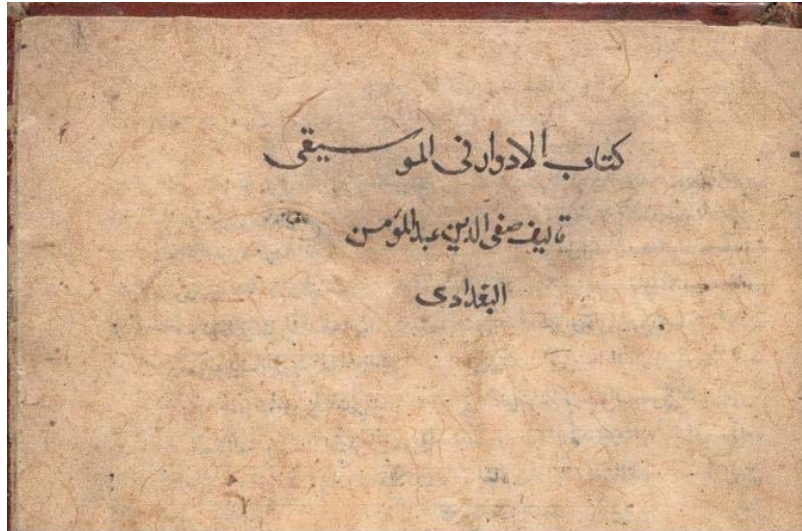 كتاب الادوار فى الموسيقى
تاليف صفى الدين عبد المؤمن
البغدادى